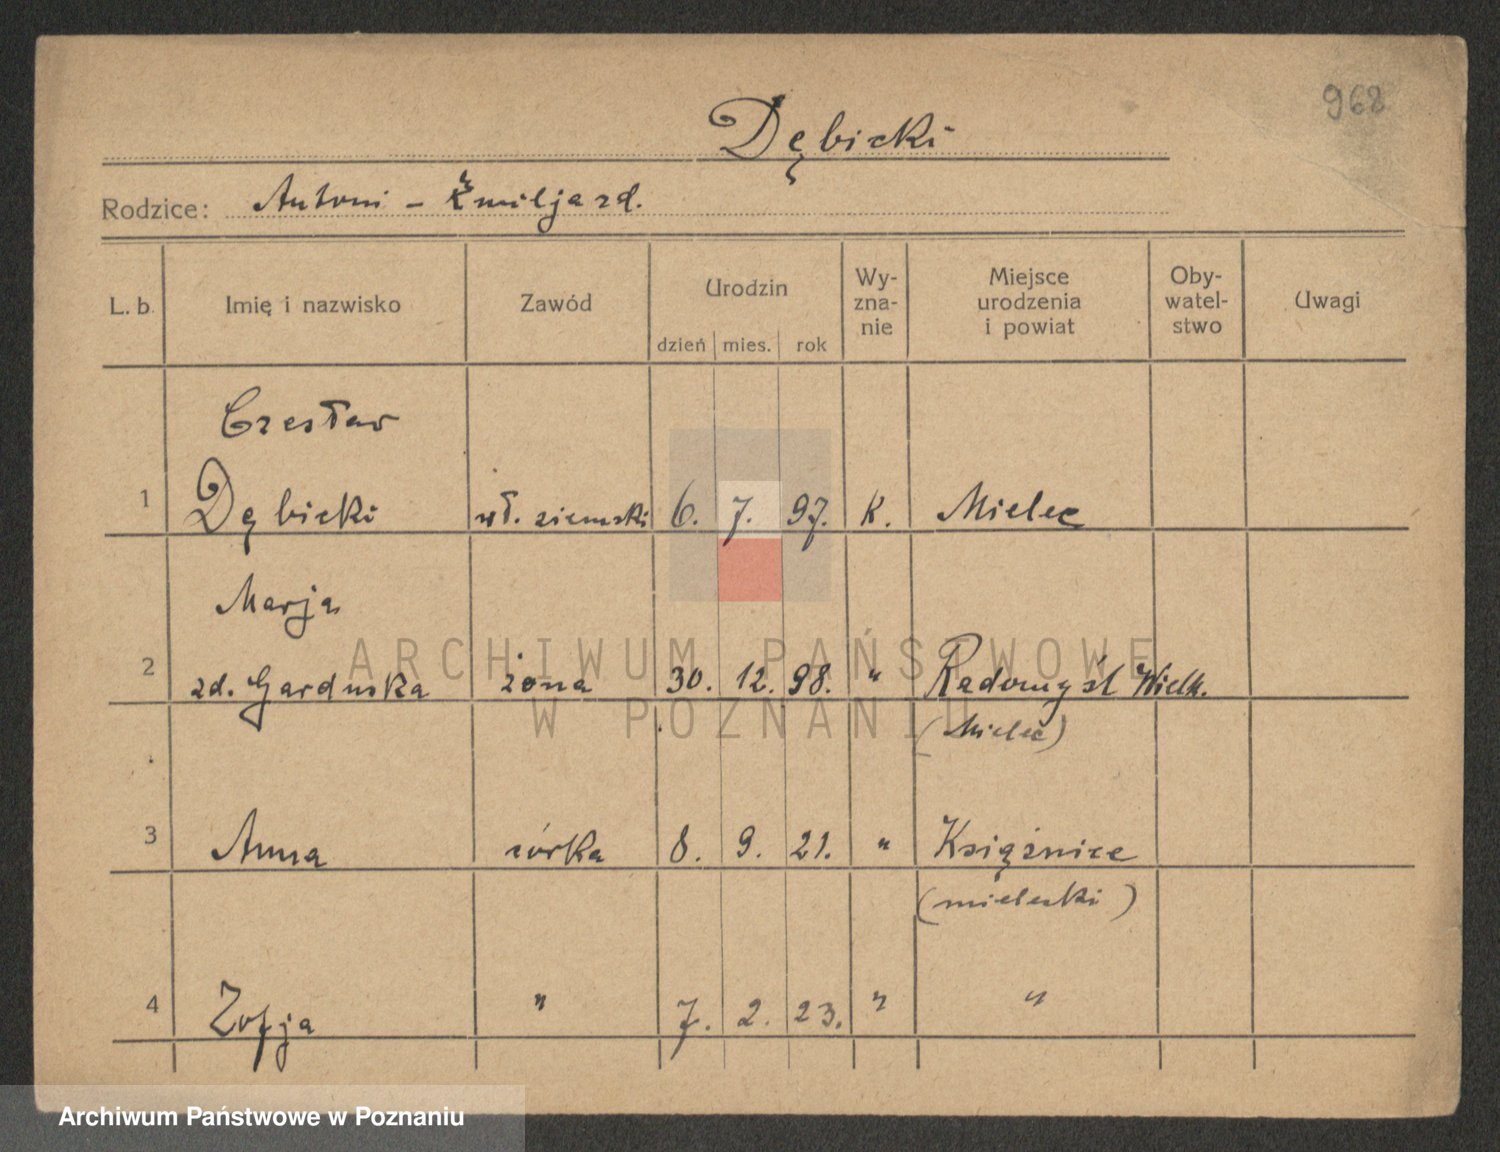 968
Dębicki
Rodzice: Antoni - Emilja zd.
L. b. Imię i nazwisko Zawód Urodzin dzień mies. rok Wy-zna-nie Miejsce urodzenia i powiat Oby-watel-stwo Uwagi
Czesław
1 Dębicki wł. ziemski 6. 7. 97. K. Mielec
Marja
2 zd. żona 30. 12. 98. " Radomyśl Wielk.
(Mielec)
3 Anna córka 8. 9. 21. " Książnice
(mielecki)
4 Zofja " 7. 2. 23. " "
ARCHIWUM PAŃSTWOWE
W POZNANIU
Archiwum Państwowe w Poznaniu